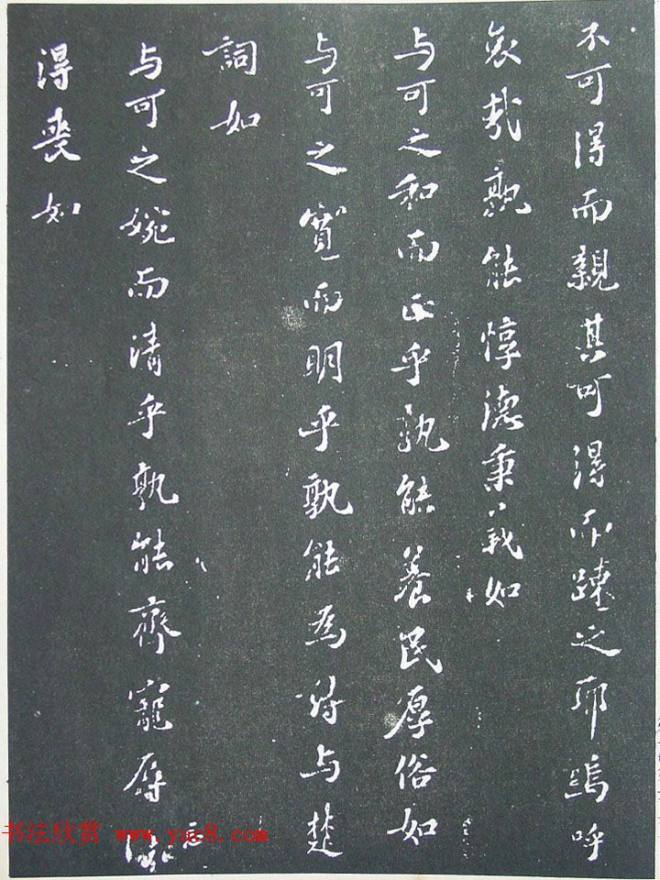 不可得而親其可得而疎之耶嗚呼
哀哉孰能惇德秉義如
与可之和而正乎孰能養民厚俗如
与可之寬而明乎孰能為詩与楚
詞如
与可之婉而清乎孰能齊寵辱
得喪如
书法欣赏 www.yac8.com